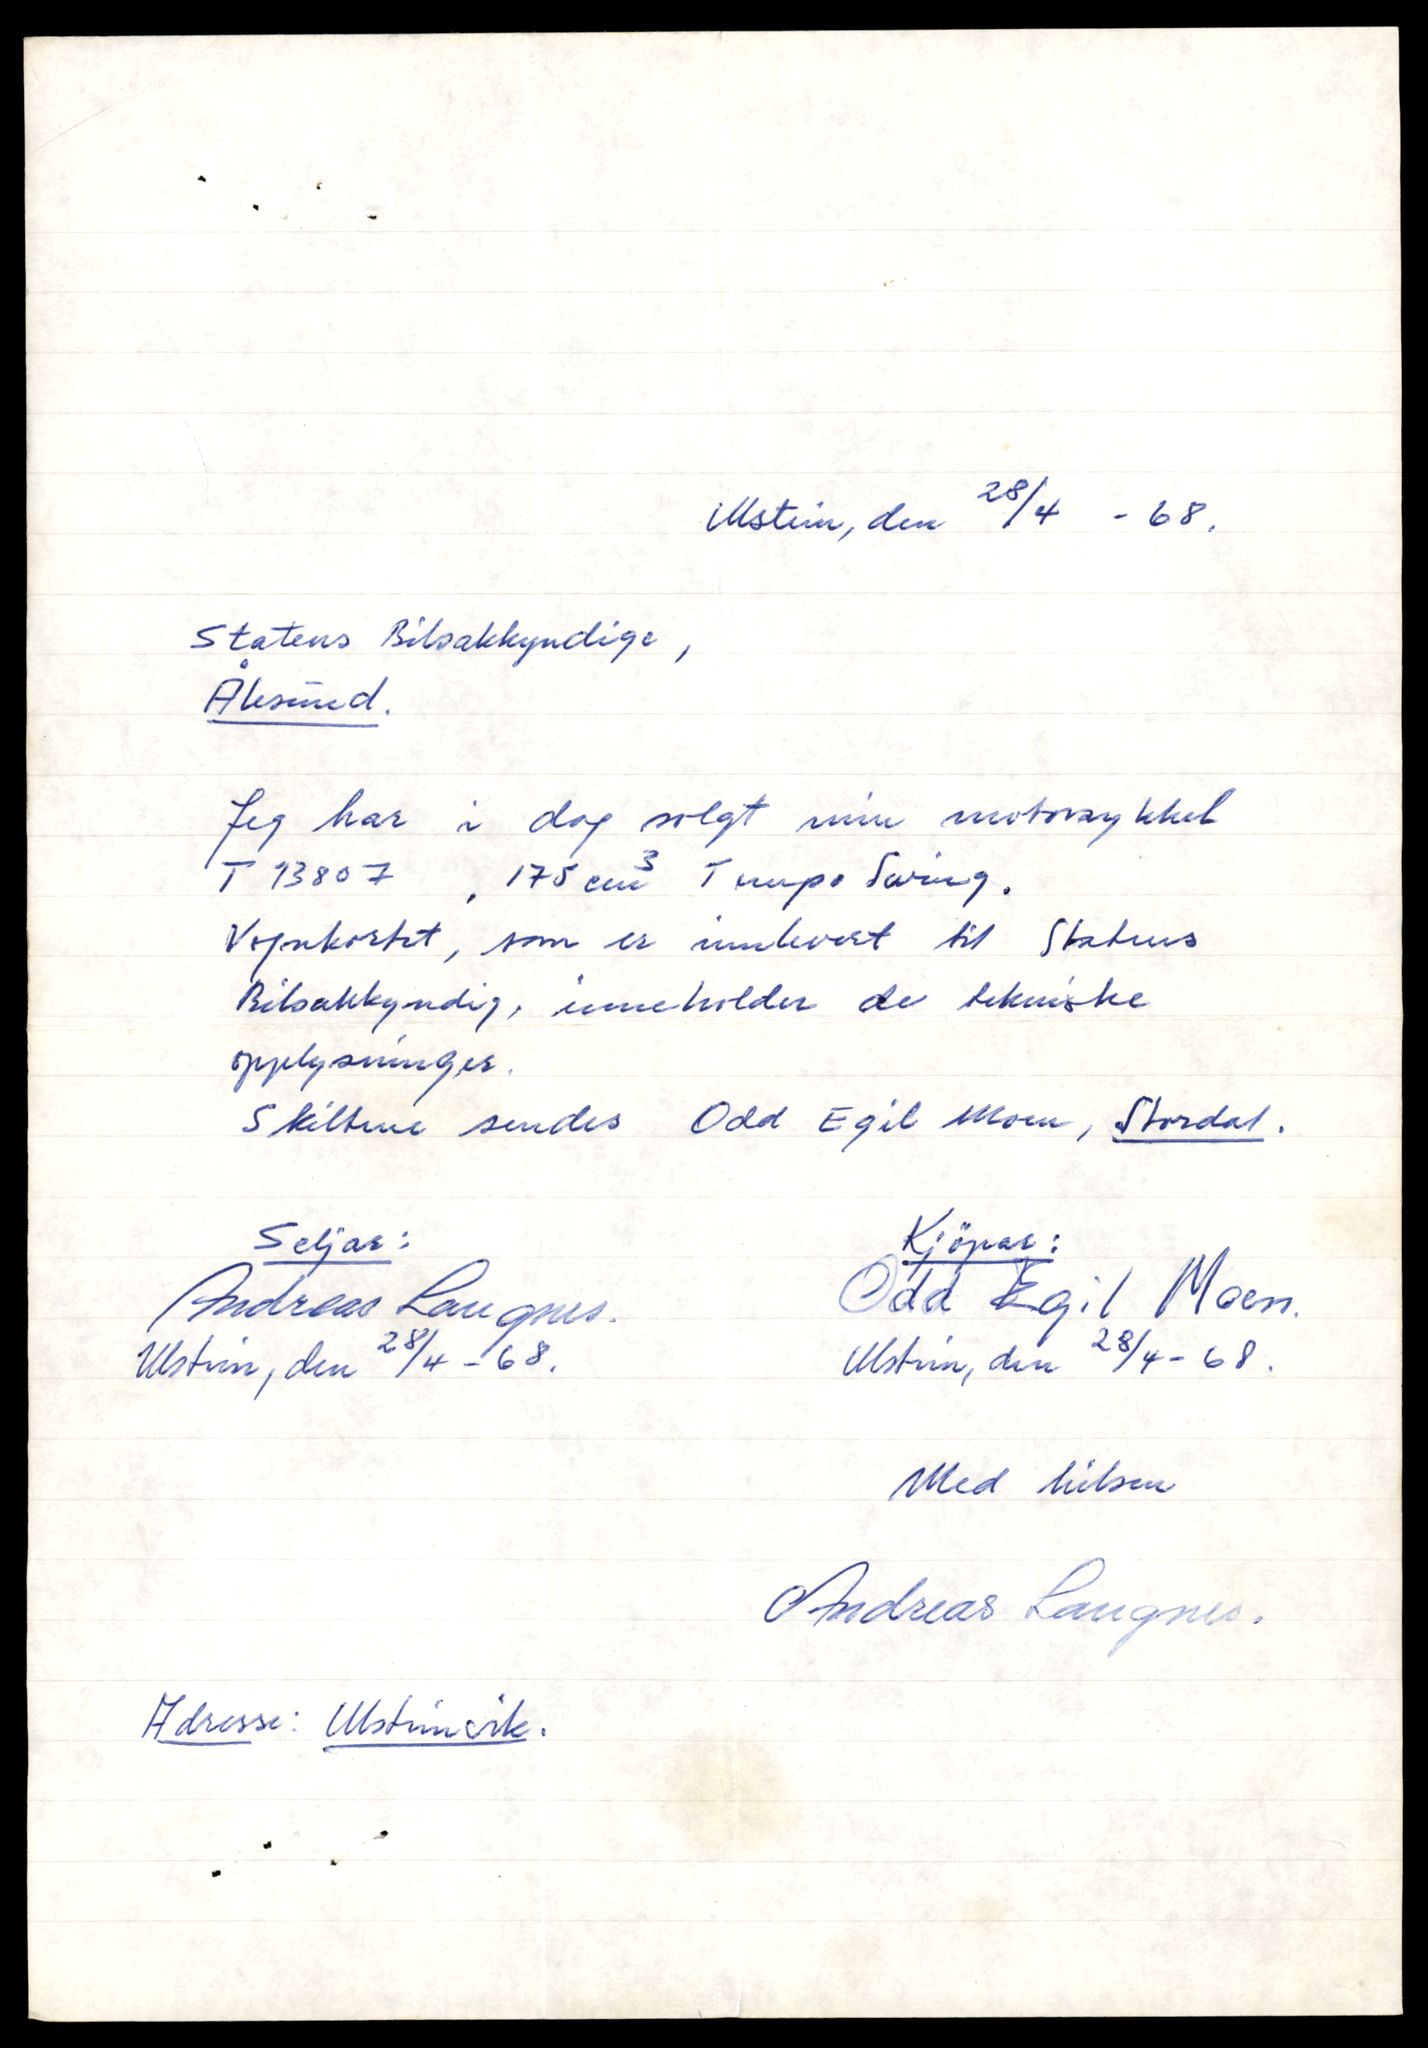 Ulstein, den 28/4 - 68.
Statens Bilsakkyndige,
Ålesund.
Jeg har i dag solgt min motorsykkel
T 13807 , 175 cm3 Tempo Swing.
Vognkortet, som er innlevert til Statens
Bilsakkyndig, inneholder de tekniske
opplysninger.
Skiltene sendes Odd Egil Moen, Stordal.
Seljar:
Andreas Laugnes.
Ulstein, den 28/4 - 68.
Kjöpar:
Odd Egil Moen.
Ulstein, den 28/4 - 68.
Med hilsen
Andreas Laugnes.
Adresse: Ulsteinvik.